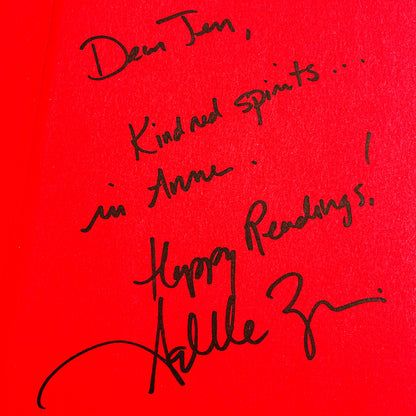 Dear Jen,
Kindred spirits...
in Anne.
Happy Readings!